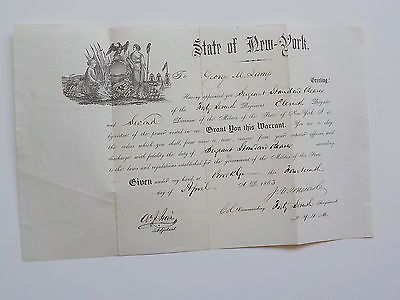 State of New-York.
To George M. Greeting:
Having appointed you Sergeant Standard Bearer
of the Forty Second Regiment Eleventh Brigade
and Second Division of the Militia of the State of New York I
by virtue of the power vested in me Grant You this Warrant. You are to obey
the orders which you shall, from time to time, receive from your superior officers and
discharge with fidelity the duty of Sergeant Standard Bearer according
to the laws and regulations established for the government of the Militia of this State.
Given under my hand, at Brooklyn this
day of April A. D. 1863
Adjutant
Col. Commanding Forty Second Regiment
N. Y. S. M.